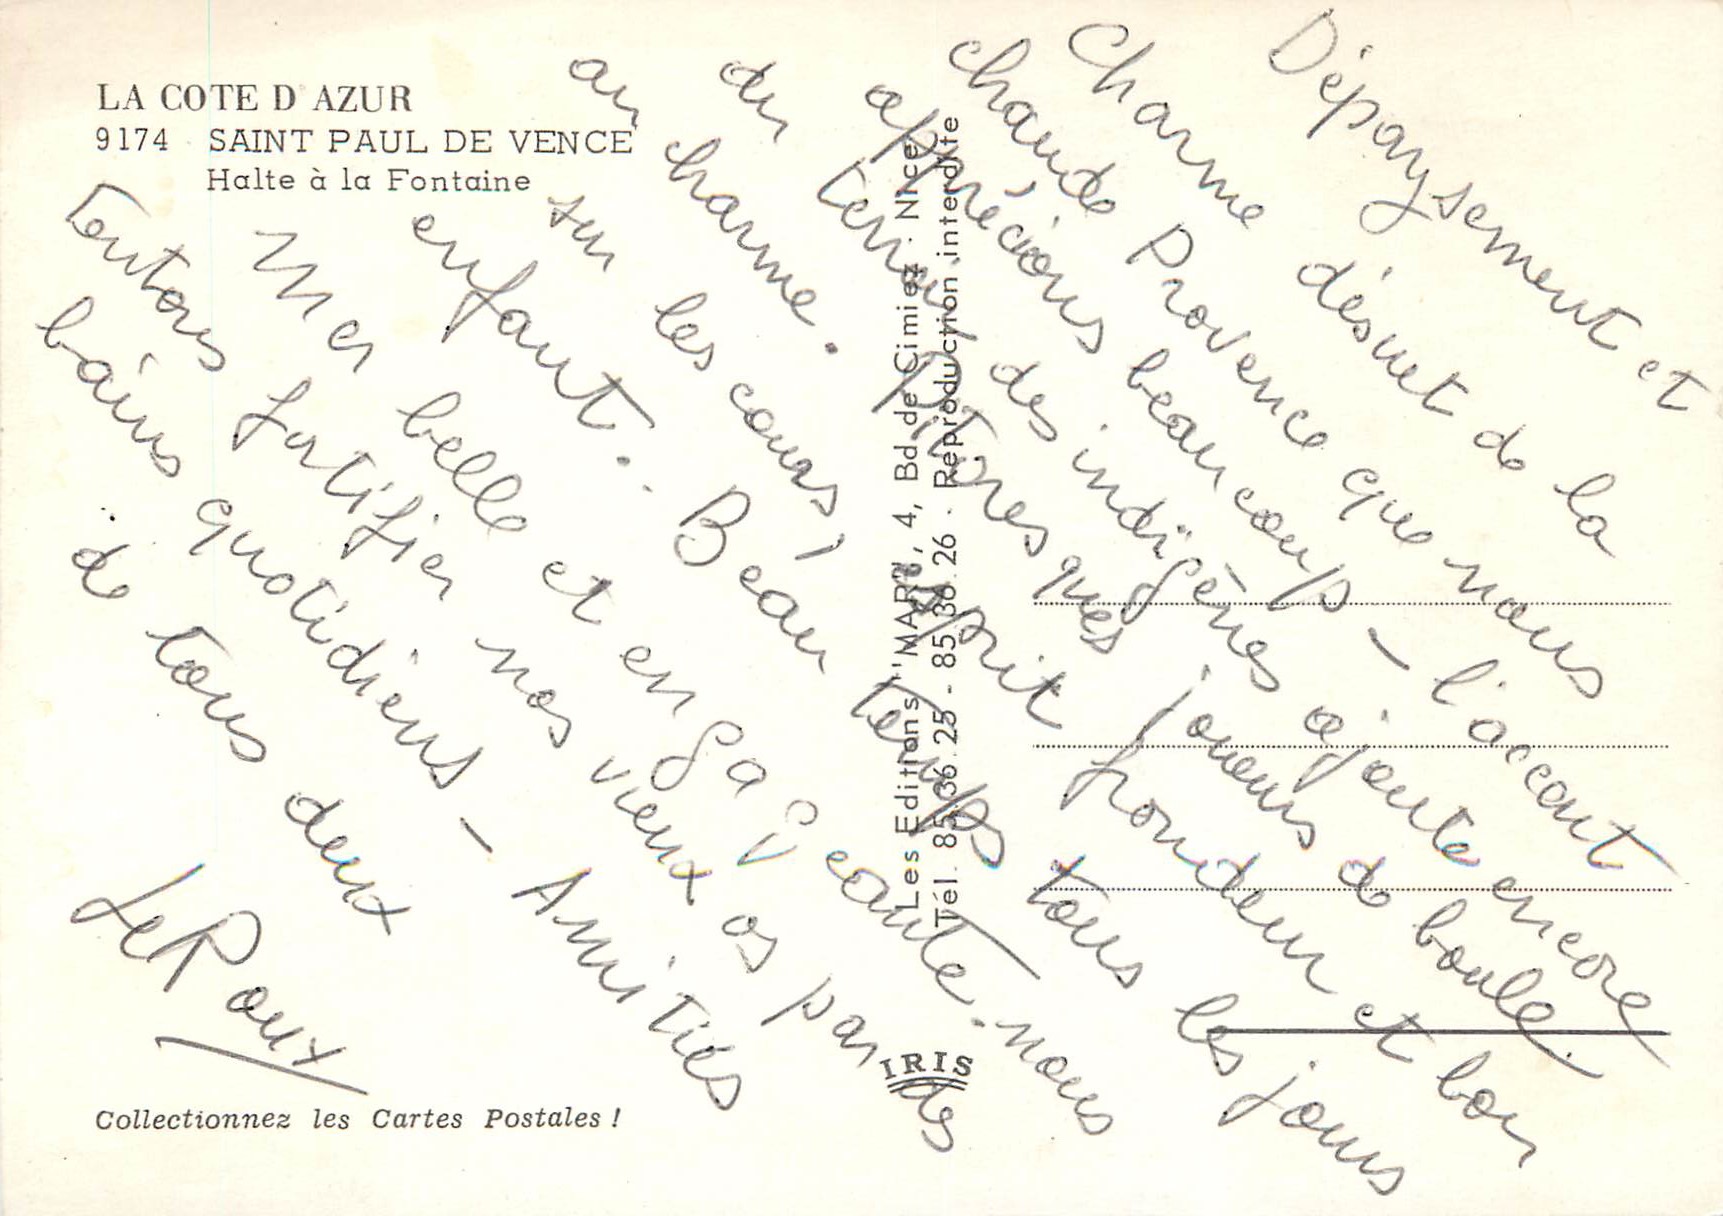 LA COTE D'AZUR
9174 SAINT PAUL DE VENCE
Halte à la Fontaine
Dépaysement et
Charme désuet de la
chaude Provence que nous
apprécions beaucoup - l'accent
du terroir des indigènes ajoute encore
au charme. Pittoresques joueurs de boule
sur les cours, esprit frondeur et bon
enfant. Beau temps tous les jours
Mer belle et engageante. nous
tentons fortifier nos vieux os par des
bains quotidiens - Amitiés
de tous deux
Le Roux
Les Editions "MAR", 4, Bd de Cimiez - Nice
Tél. 85.36.25 - 85.36.26 - Reproduction interdite
IRIS
Collectionnez les Cartes Postales !